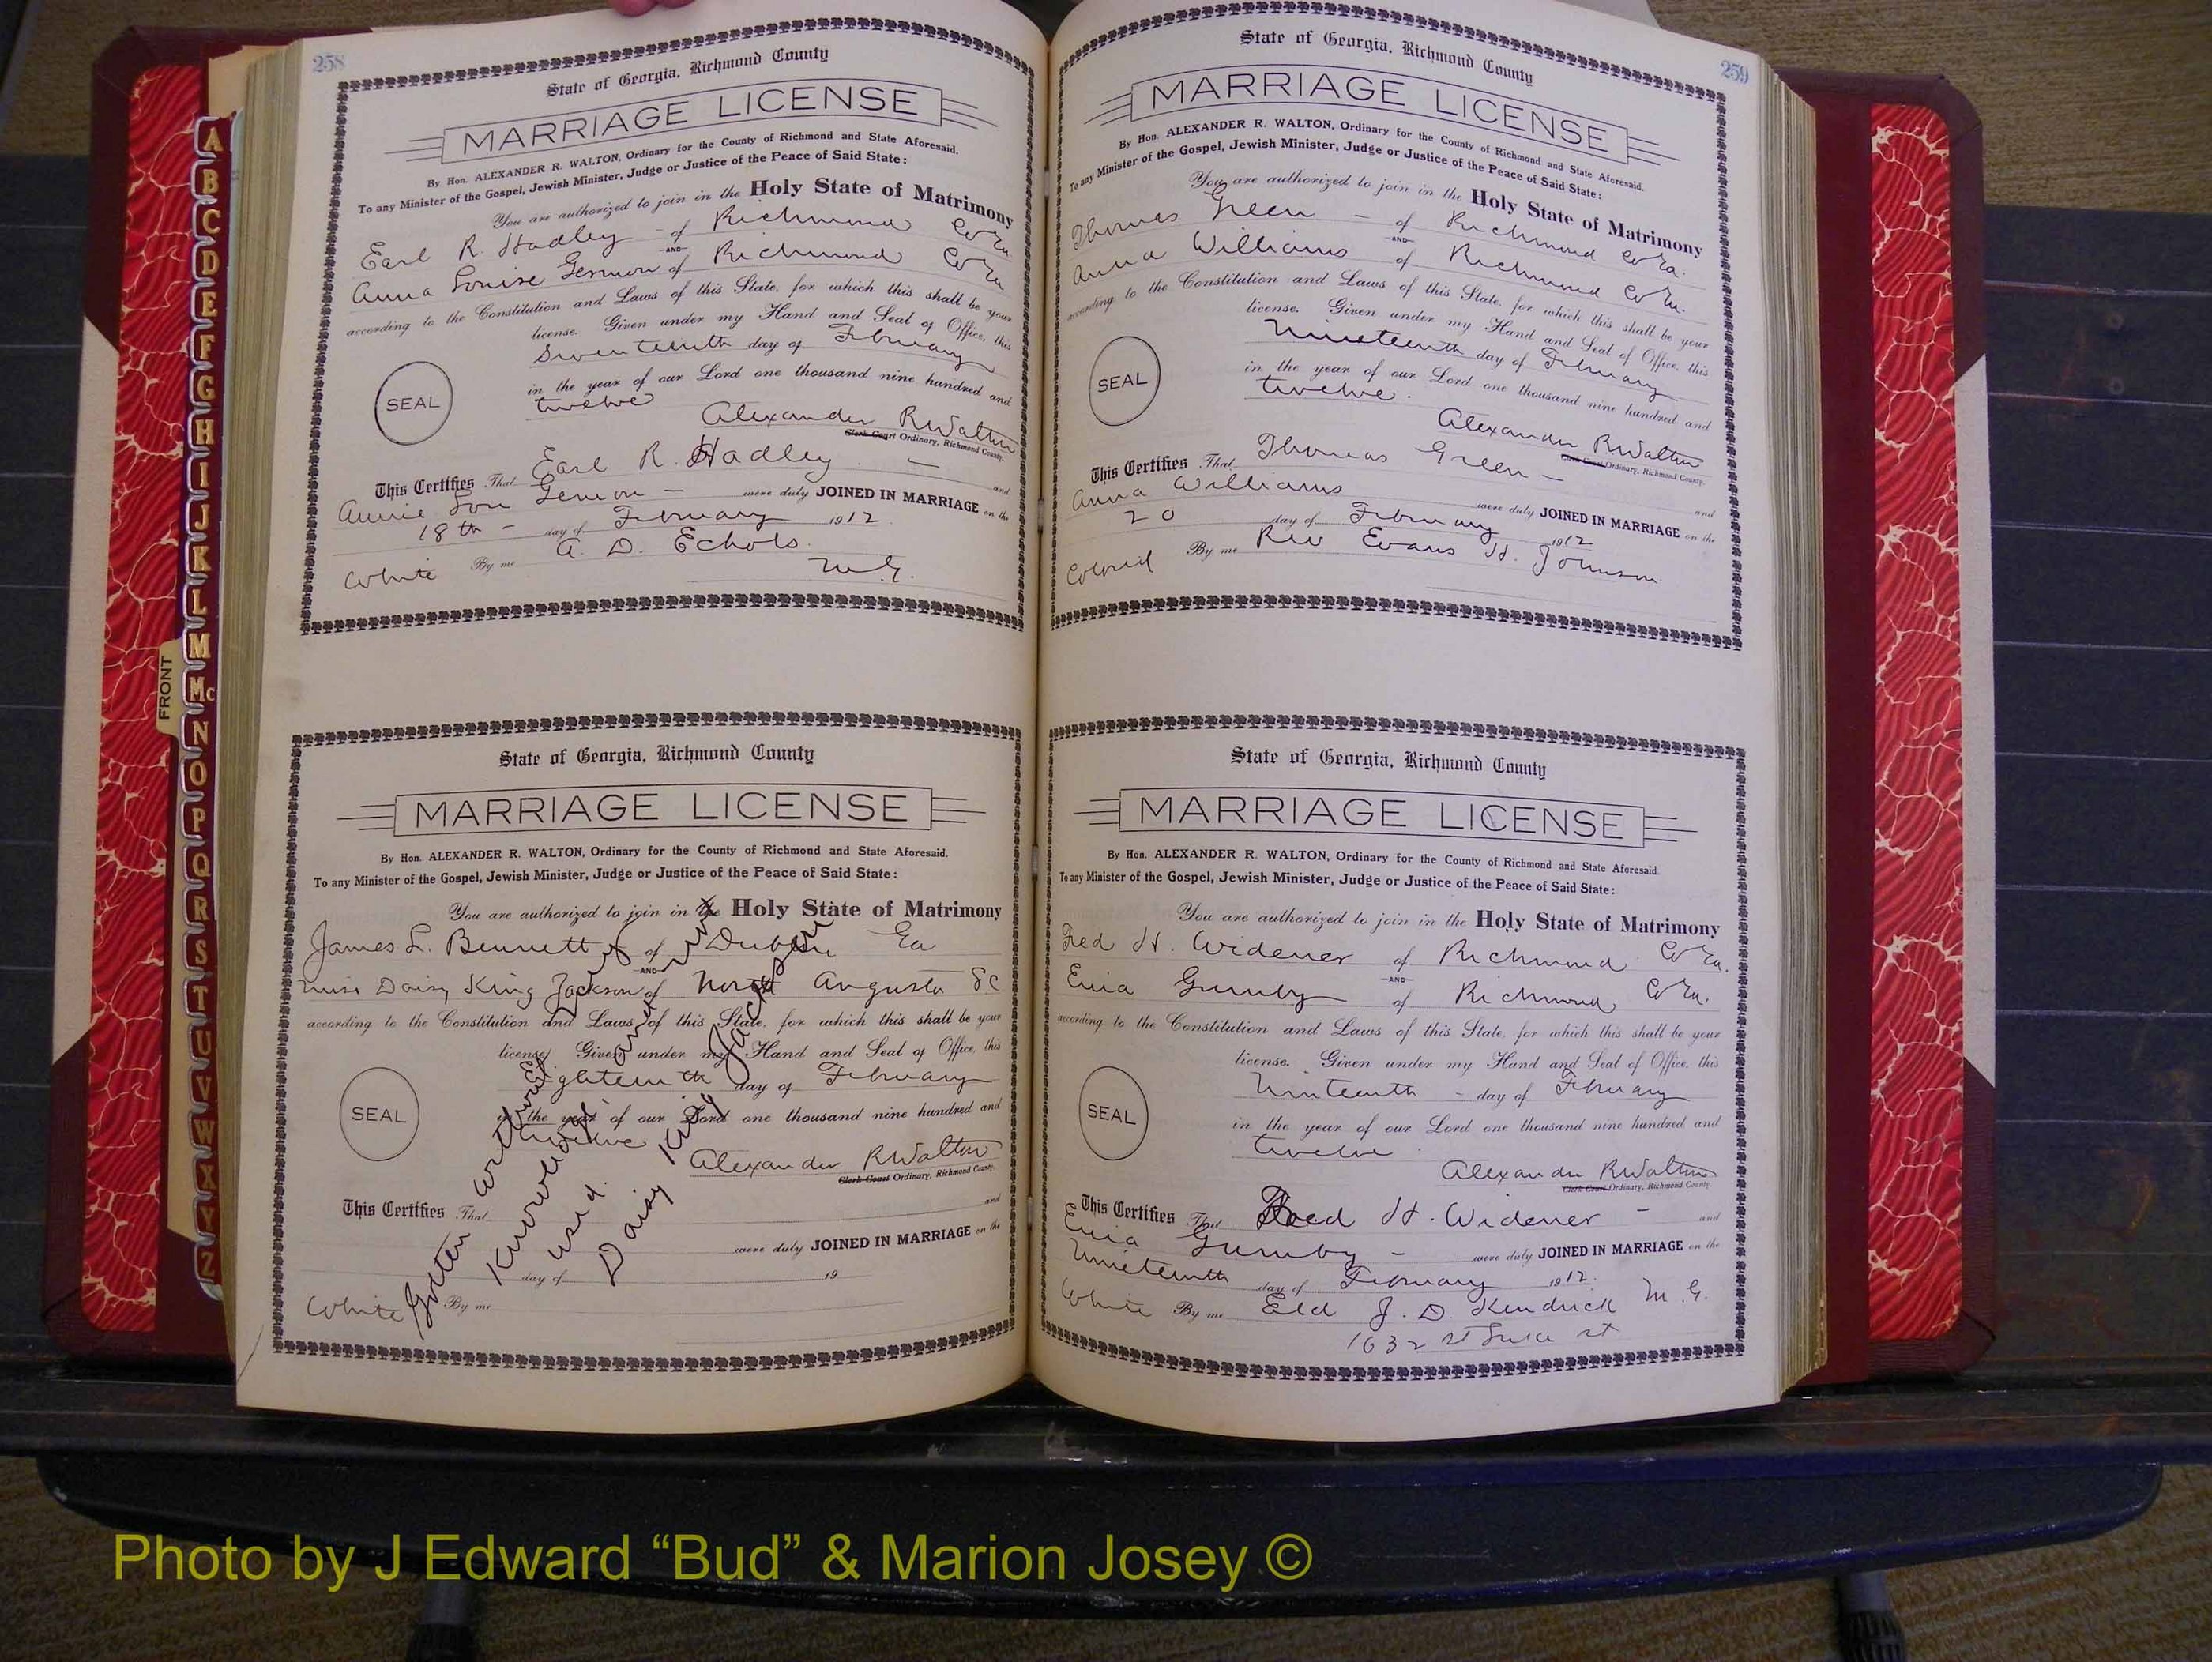 258
State of Georgia, Richmond County
MARRIAGE LICENSE
By Hon. ALEXANDER R. WALTON, Ordinary for the County of Richmond and State Aforesaid.
To any Minister of the Gospel, Jewish Minister, Judge or Justice of the Peace of Said State:
You are authorized to join in the Holy State of Matrimony
Earl R. Hadley - of Richmond Co Ga
AND
Anna Louise Gernon of Richmond Co Ga
according to the Constitution and Laws of this State, for which this shall be your
license. Given under my Hand and Seal of Office, this
Seventeenth day of February
in the year of our Lord one thousand nine hundred and
twelve
SEAL
Alexander R Walton
Clerk Court Ordinary, Richmond County.
This Certifies That Earl R. Hadley - and
Annie Lou Gernon - were duly JOINED IN MARRIAGE on the
18th - day of February 1912
White By me A. D. Echols
M.G.
State of Georgia, Richmond County
MARRIAGE LICENSE
By Hon. ALEXANDER R. WALTON, Ordinary for the County of Richmond and State Aforesaid.
To any Minister of the Gospel, Jewish Minister, Judge or Justice of the Peace of Said State:
You are authorized to join in the Holy State of Matrimony
James L. Bennett of Dublin Ga
AND
Miss Daisy King Jackson of North Augusta S.C
according to the Constitution and Laws of this State, for which this shall be your
license. Given under my Hand and Seal of Office, this
Eighteenth day of February
in the year of our Lord one thousand nine hundred and
twelve
SEAL
Alexander R Walton
Clerk Court Ordinary, Richmond County.
This Certifies That and
were duly JOINED IN MARRIAGE on the
day of 19
White By me
Gotten without
Knowledge
used
Daisy King Jackson
259
State of Georgia, Richmond County
MARRIAGE LICENSE
By Hon. ALEXANDER R. WALTON, Ordinary for the County of Richmond and State Aforesaid.
To any Minister of the Gospel, Jewish Minister, Judge or Justice of the Peace of Said State:
You are authorized to join in the Holy State of Matrimony
Thomas Green - of Richmond Co Ga.
AND
Anna Williams of Richmond Co Ga.
according to the Constitution and Laws of this State, for which this shall be your
license. Given under my Hand and Seal of Office, this
Nineteenth day of February
in the year of our Lord one thousand nine hundred and
twelve.
SEAL
Alexander R Walton
Clerk Court Ordinary, Richmond County.
This Certifies That Thomas Green - and
Anna Williams were duly JOINED IN MARRIAGE on the
20 day of February 1912
Colored By me Rev Evans H. Johnson
State of Georgia, Richmond County
MARRIAGE LICENSE
By Hon. ALEXANDER R. WALTON, Ordinary for the County of Richmond and State Aforesaid.
To any Minister of the Gospel, Jewish Minister, Judge or Justice of the Peace of Said State:
You are authorized to join in the Holy State of Matrimony
Fred H. Widener of Richmond Co Ga.
AND
Gumby of Richmond Co Ga.
according to the Constitution and Laws of this State, for which this shall be your
license. Given under my Hand and Seal of Office, this
Nineteenth - day of February
in the year of our Lord one thousand nine hundred and
twelve
SEAL
Alexander R Walton
Clerk Court Ordinary, Richmond County.
This Certifies That Fred H. Widener - and
Gumby - were duly JOINED IN MARRIAGE on the
Nineteenth day of February 1912.
White By me Eld J. D. Kendrick M.G.
1632 St Luke st
A
B
C
D
E
F
G
H
I
J
K
L
M
Mc
N
O
P
Q
R
S
T
U
V
W
X
Y
Z
FRONT
Photo by J Edward “Bud” & Marion Josey ©